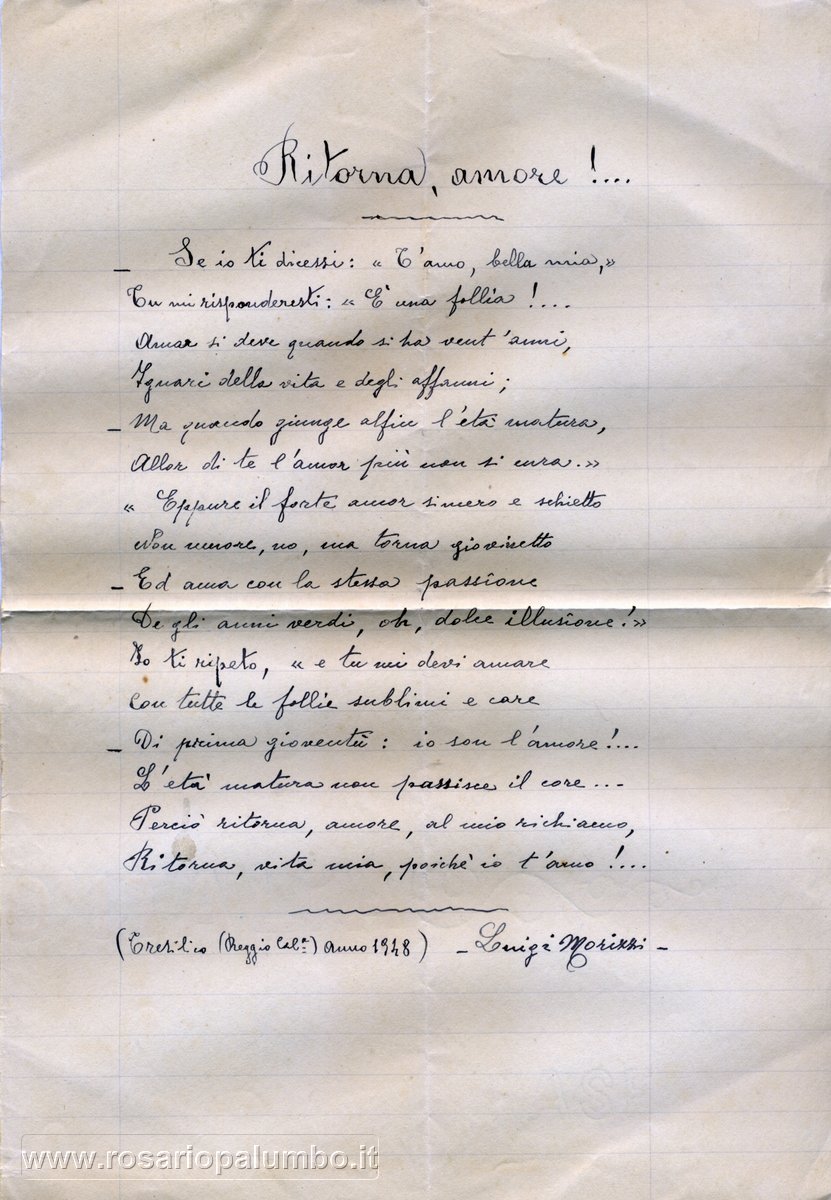 Ritorna, amore!...
— Se io ti dicessi: « T'amo, bella mia,»
Tu mi risponderesti: « È una follia!...
Amar si deve quando si ha vent'anni,
Ignari della vita e degli affanni;
— Ma quando giunge alfin l'età matura,
Allor di te l'amor più non si cura.»
« Eppure il forte amor sincero e schietto
Non muore, no, ma torna giovinetto
— Ed ama con la stessa passione
De gli anni verdi, oh, dolce illusione!»
Io ti ripeto, « e tu mi devi amare
Con tutte le follie sublimi e care
— Di prima gioventù: io son l'amore!...
L'età matura non passisce il core...
Perciò ritorna, amore, al mio richiamo,
Ritorna, vita mia, poichè io t'amo!...
(Tresilico (Reggio Cal.ª) Anno 1948) — Luigi Morizzi —
www.rosariopalumbo.it